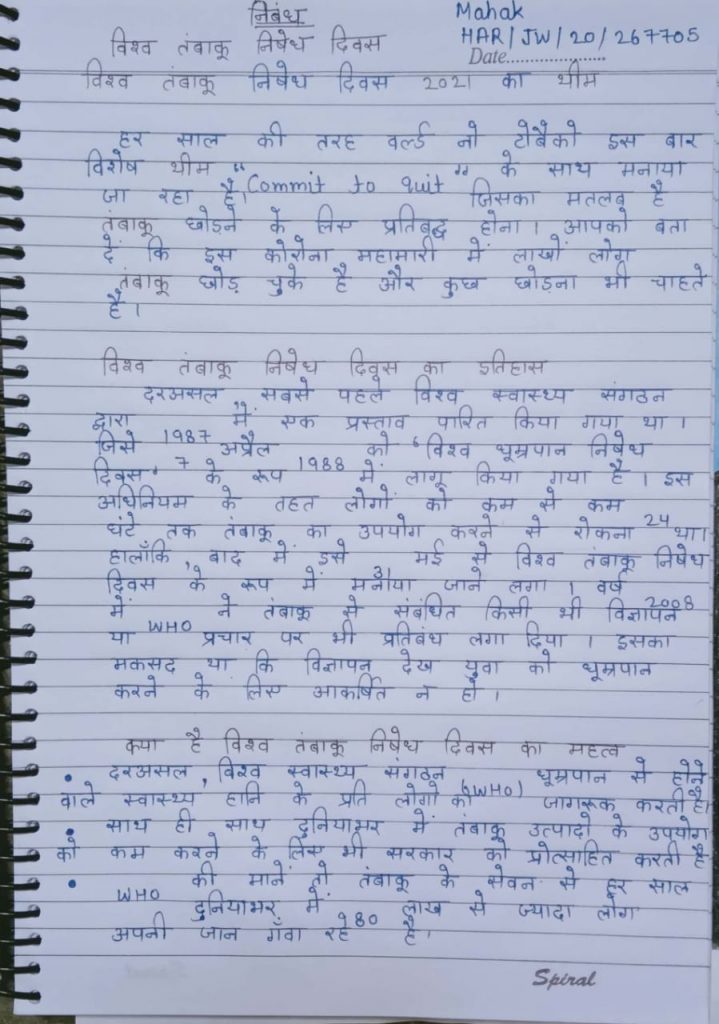 निबंध
Mahak
विश्व तंबाकू निषेध दिवस
HAR/JW/20/267705
Date....................
विश्व तंबाकू निषेध दिवस 2021 का थीम
हर साल की तरह वर्ल्ड नो टोबैको इस बार
विशेष थीम "Commit to quit" के साथ मनाया
जा रहा है। जिसका मतलब है
तंबाकू छोड़ने के लिए प्रतिबद्ध होना। आपको बता
दें कि इस कोरोना महामारी में लाखों लोग
तंबाकू छोड़ चुके है और कुछ छोड़ना भी चाहते
है।
विश्व तंबाकू निषेध दिवस का इतिहास
दरअसल, सबसे पहले विश्व स्वास्थ्य संगठन
द्वारा 1987 में एक प्रस्ताव पारित किया गया था।
जिसे 7 अप्रैल 1988 को 'विश्व धूम्रपान निषेध
दिवस' के रूप में लागू किया गया है। इस
अधिनियम के तहत लोगों को कम से कम 24
घंटे तक तंबाकू का उपयोग करने से रोकना था।
हालाँकि, बाद में इसे 31 मई से विश्व तंबाकू निषेध
दिवस के रूप में मनाया जाने लगा। वर्ष 2008
में WHO ने तंबाकू से संबंधित किसी भी विज्ञापन
या प्रचार पर भी प्रतिबंध लगा दिया। इसका
मकसद था कि विज्ञापन देख युवा को धूम्रपान
करने के लिए आकर्षित न हो।
क्या है विश्व तंबाकू निषेध दिवस का महत्व
• दरअसल, विश्व स्वास्थ्य संगठन (WHO) धूम्रपान से होने
वाले स्वास्थ्य हानि के प्रति लोगो को जागरूक करती है।
• साथ ही साथ दुनियाभर में तंबाकू उत्पादो के उपयोग
को कम करने के लिए भी सरकार को प्रोत्साहित करती है
• WHO की माने तो तंबाकू के सेवन से हर साल
दुनियाभर में 80 लाख से ज्यादा लोग
अपनी जान गँवा रहे है।
Spiral